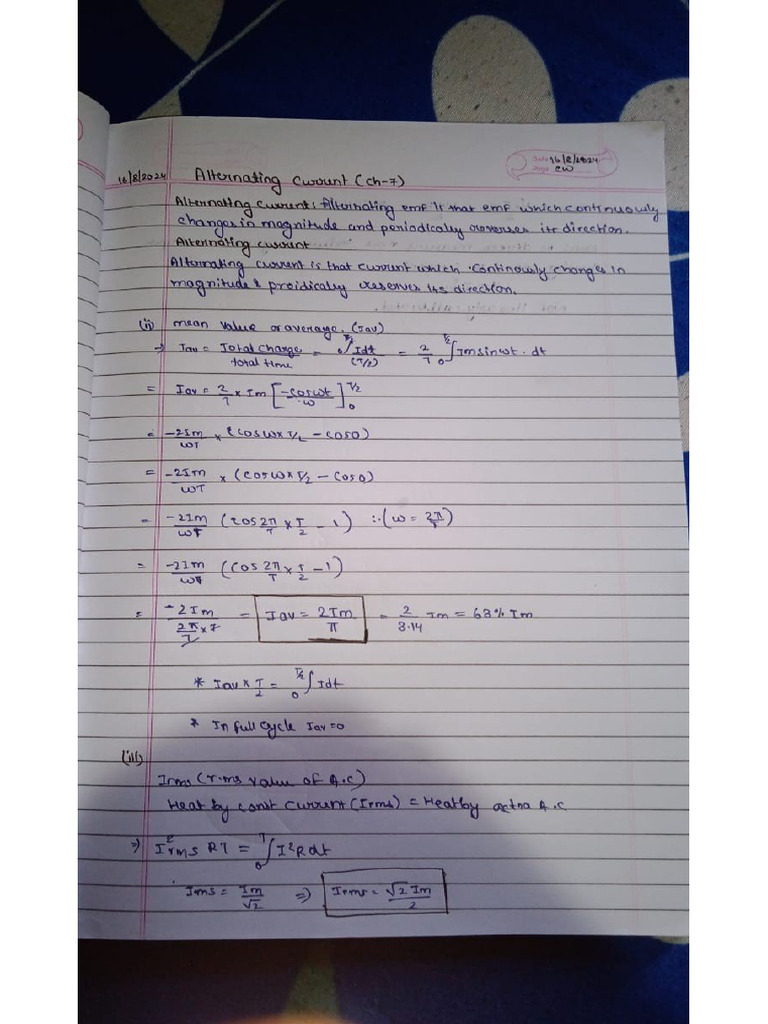 16/8/2024
CW
16/8/2024 Alternating Current (Ch-7)
Alternating current: Alternating emf is that emf which continuously
changes in magnitude and periodically reverses its direction.
Alternating current
Alternating current is that current which continously changes in
magnitude & preidically reserves its direction.
(ii) mean value or average. (Iav)
→ Iav = Total charge / total time = 0∫T/2 Idt / (T/2) = 2/T 0∫T/2 Im sin wt . dt
= Iav = 2/T × Im [-cos wt / w]T/2 0
= -2Im/wT × (cos w × T/2 - cos 0)
= -2Im/wT × (cos w × T/2 - cos 0)
= -2Im/wT (cos 2π/T × T/2 - 1) ∴ (w = 2π/T)
= -2Im/wT (cos 2π/T × T/2 - 1)
= -2Im / 2π/T × T = Iav = 2Im/π = 2/3.14 Im = 63% Im
* Iav × T/2 = 0∫T/2 Idt
* In full cycle Iav = 0
(iii)
Irms (r.ms value of A.C)
Heat by const current (Irms) = Heat by A.C
⇒ I²rms RT = 0∫T I²R dt
Irms = Im/√2 ⇒ Irms = √2 Im / 2